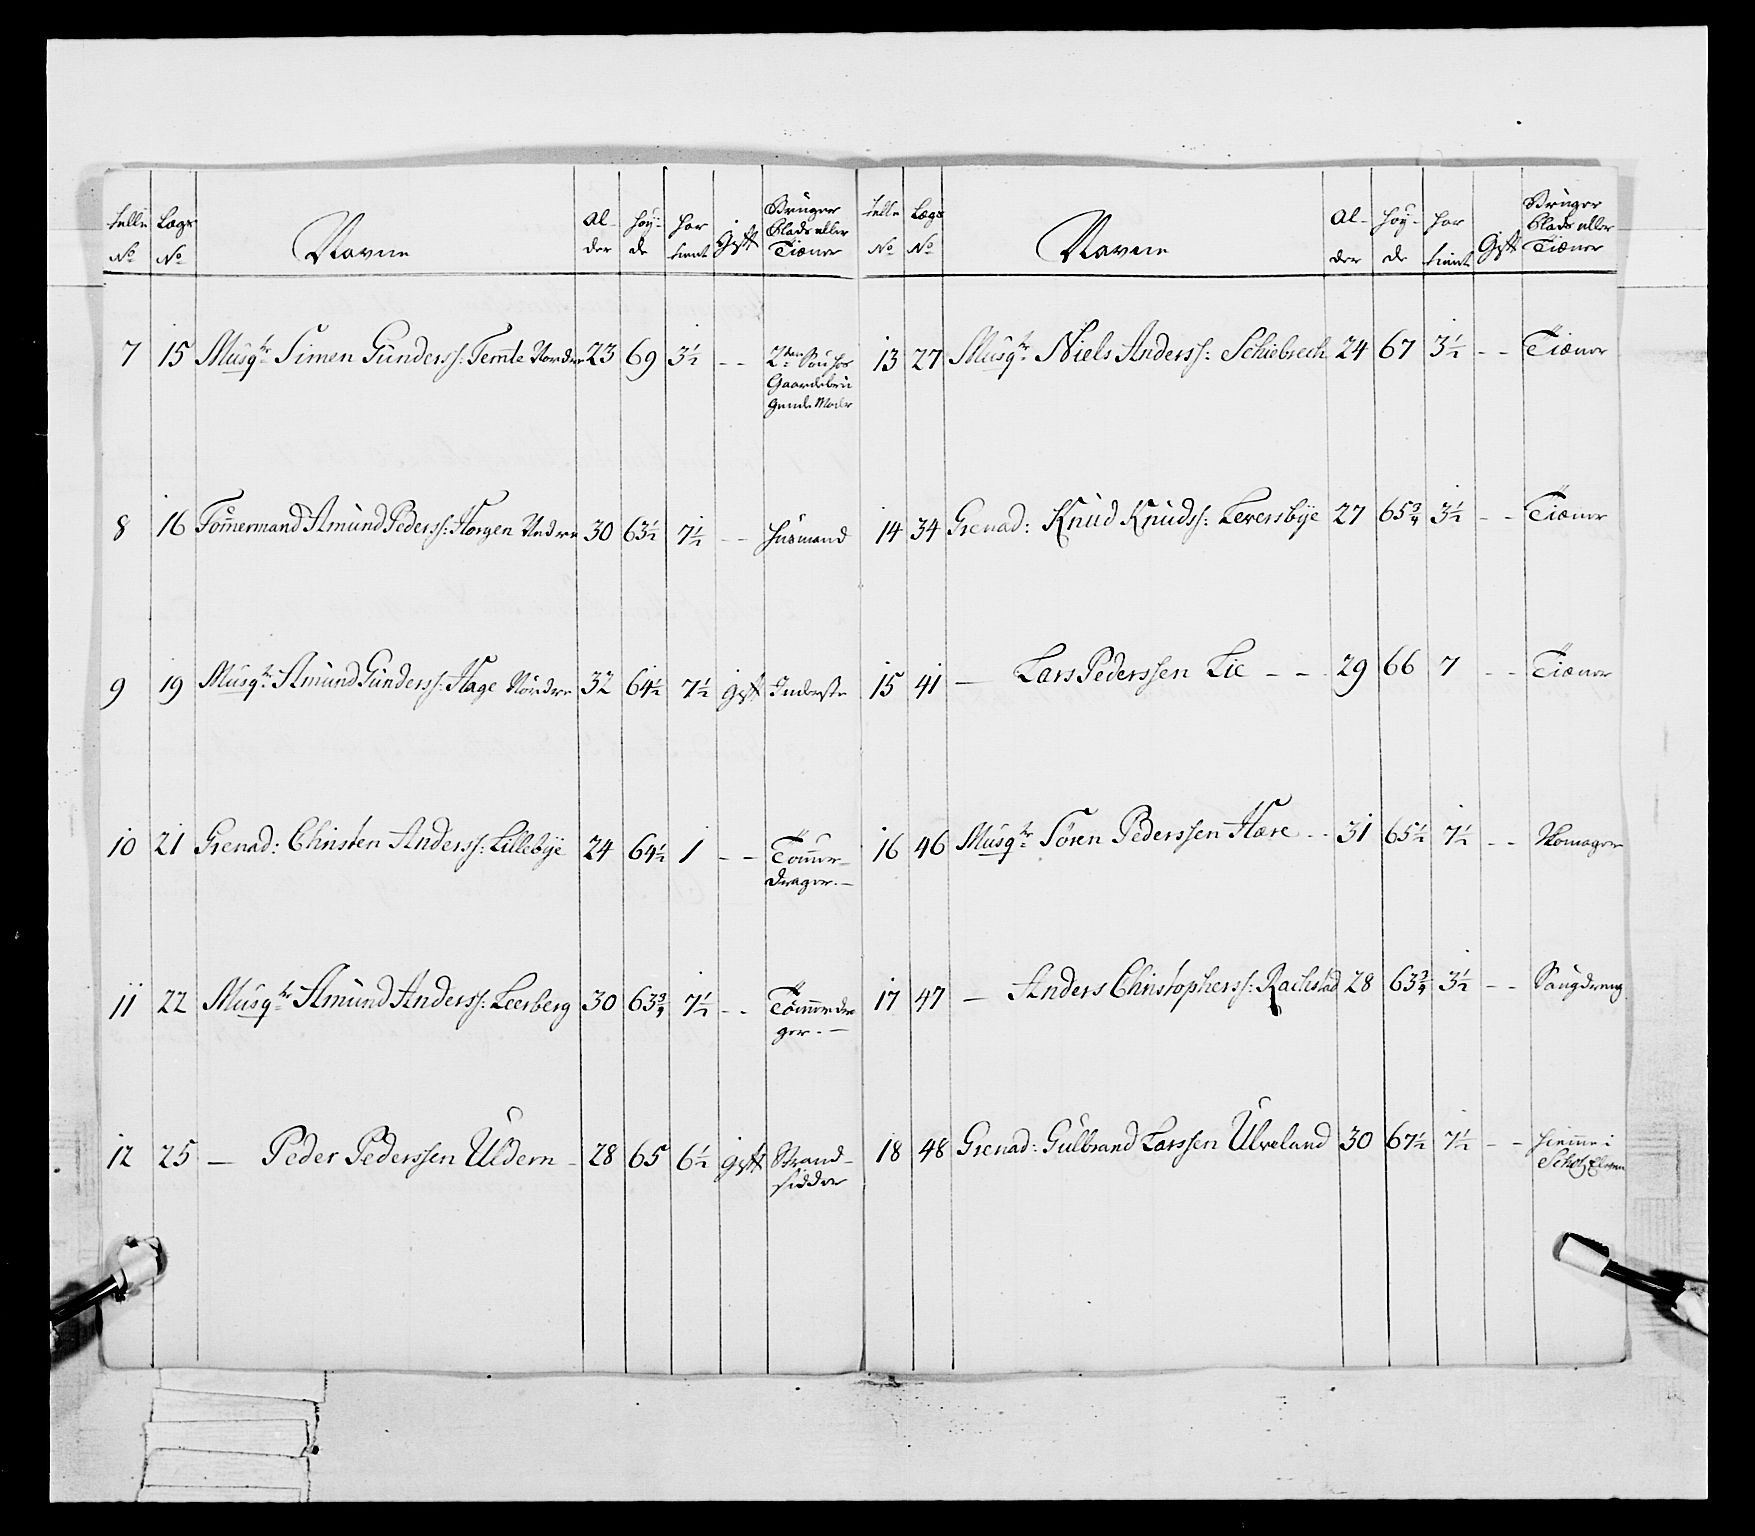 Telle No | Lægs No | Navne | Al- der | Høy- de | Har tient | Gift | Bruger Plads eller Tiener
7 | 15 | Musqtr Simen Gunderss: Temte Nordre | 23 | 69 | 3½ | - - | 2den Søn hos
Gaardebru
gende Moder
8 | 16 | Tømmermand Amund Pederss: Horgen Nedre | 30 | 63½ | 7½ | - - | Husmand
9 | 19 | Musqtr Amund Gunderss: Hage Nordre | 32 | 64½ | 7½ | gift | Inderste
10 | 21 | Grenad: Christen Anderss: Lillebye | 24 | 64½ | 1 | - - | Tømmer-
drager. —
11 | 22 | Musqtr Amund Anderss: Leerberg | 30 | 63¾ | 7½ | - - | Tømmerdra
ger. —
12 | 25 | — Peder Pederssen Uldern - | 28 | 65 | 6½ | gift | Strand-
sidder
Telle No | Lægs No | Navne | Al- der | Høy- de | Har tient | Gift | Bruger Plads eller Tiener
13 | 27 | Musqtr Niels Anderss: Schiebrech | 24 | 67 | 3½ | - - | Tiener
14 | 34 | Grenad: Knud Knudss: Leversbye | 27 | 65¾ | 3½ | - - | Tiener
15 | 41 | — Lars Pederssen Lie - - | 29 | 66 | 7 | - - | Tiener
16 | 46 | Musqtr Søren Pederssen Hære - - | 31 | 65½ | 7½ | - - | Skomager
17 | 47 | — Anders Christopherss: Rachestad | 28 | 63¾ | 3½ | - - | Saugdreng
18 | 48 | Grenad: Gulbrand Larssen Ulveland | 30 | 67½ | 7½ | - - | hiemme i